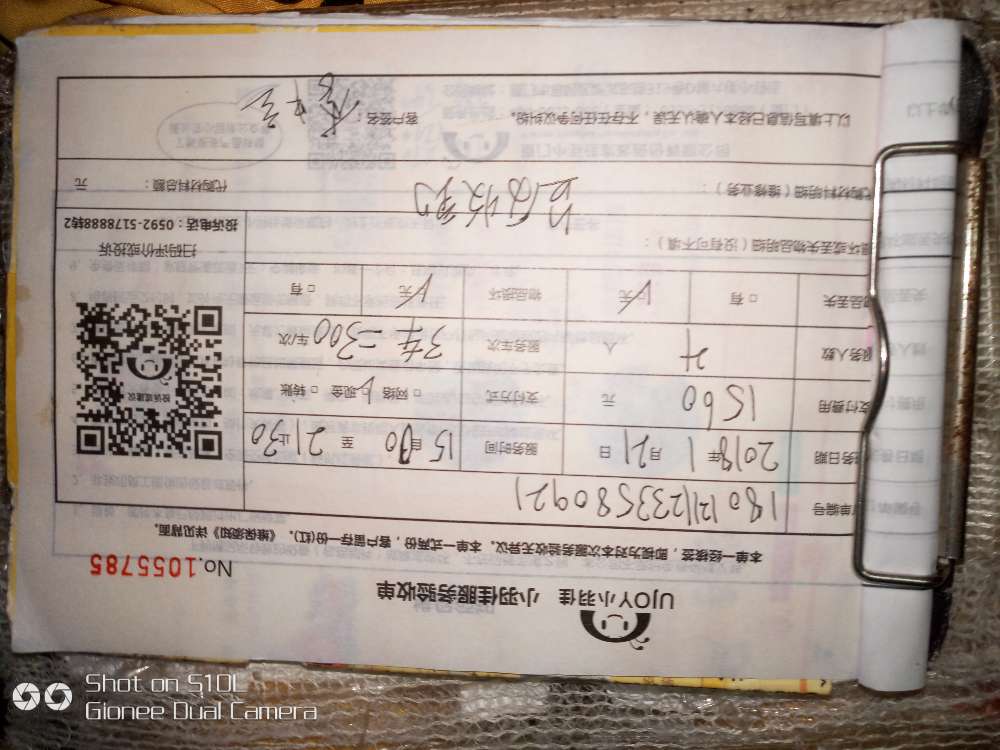 UJOY小羽佳 小羽佳服务验收单
No.1055785
本单一经接签，即视为对本次服务验收无异议。本单一式两份，客户留存一份(红)，《维保须知》详见背面。
单编号 1801211233580921
务日期 2018年1月21日 服务时间 15自30至21止30
支付费用 1560元 支付方式 □网络 □现金 □转账
服务人数 4人 服务车次 3车=300车/次
品丢失 □有 □无 物品损坏 □无 □有
损坏或丢失物品明细（没有可不填）：
扫码评价或投诉
投诉电话：0592-5178888转2
投诉建议
代购材料明细（维修业务）： 代购材料总额： 元
以上填写信息已经本人确认无误，不存在任何争议纠纷。 客户签名：
Shot on S10L
Gionee Dual Camera